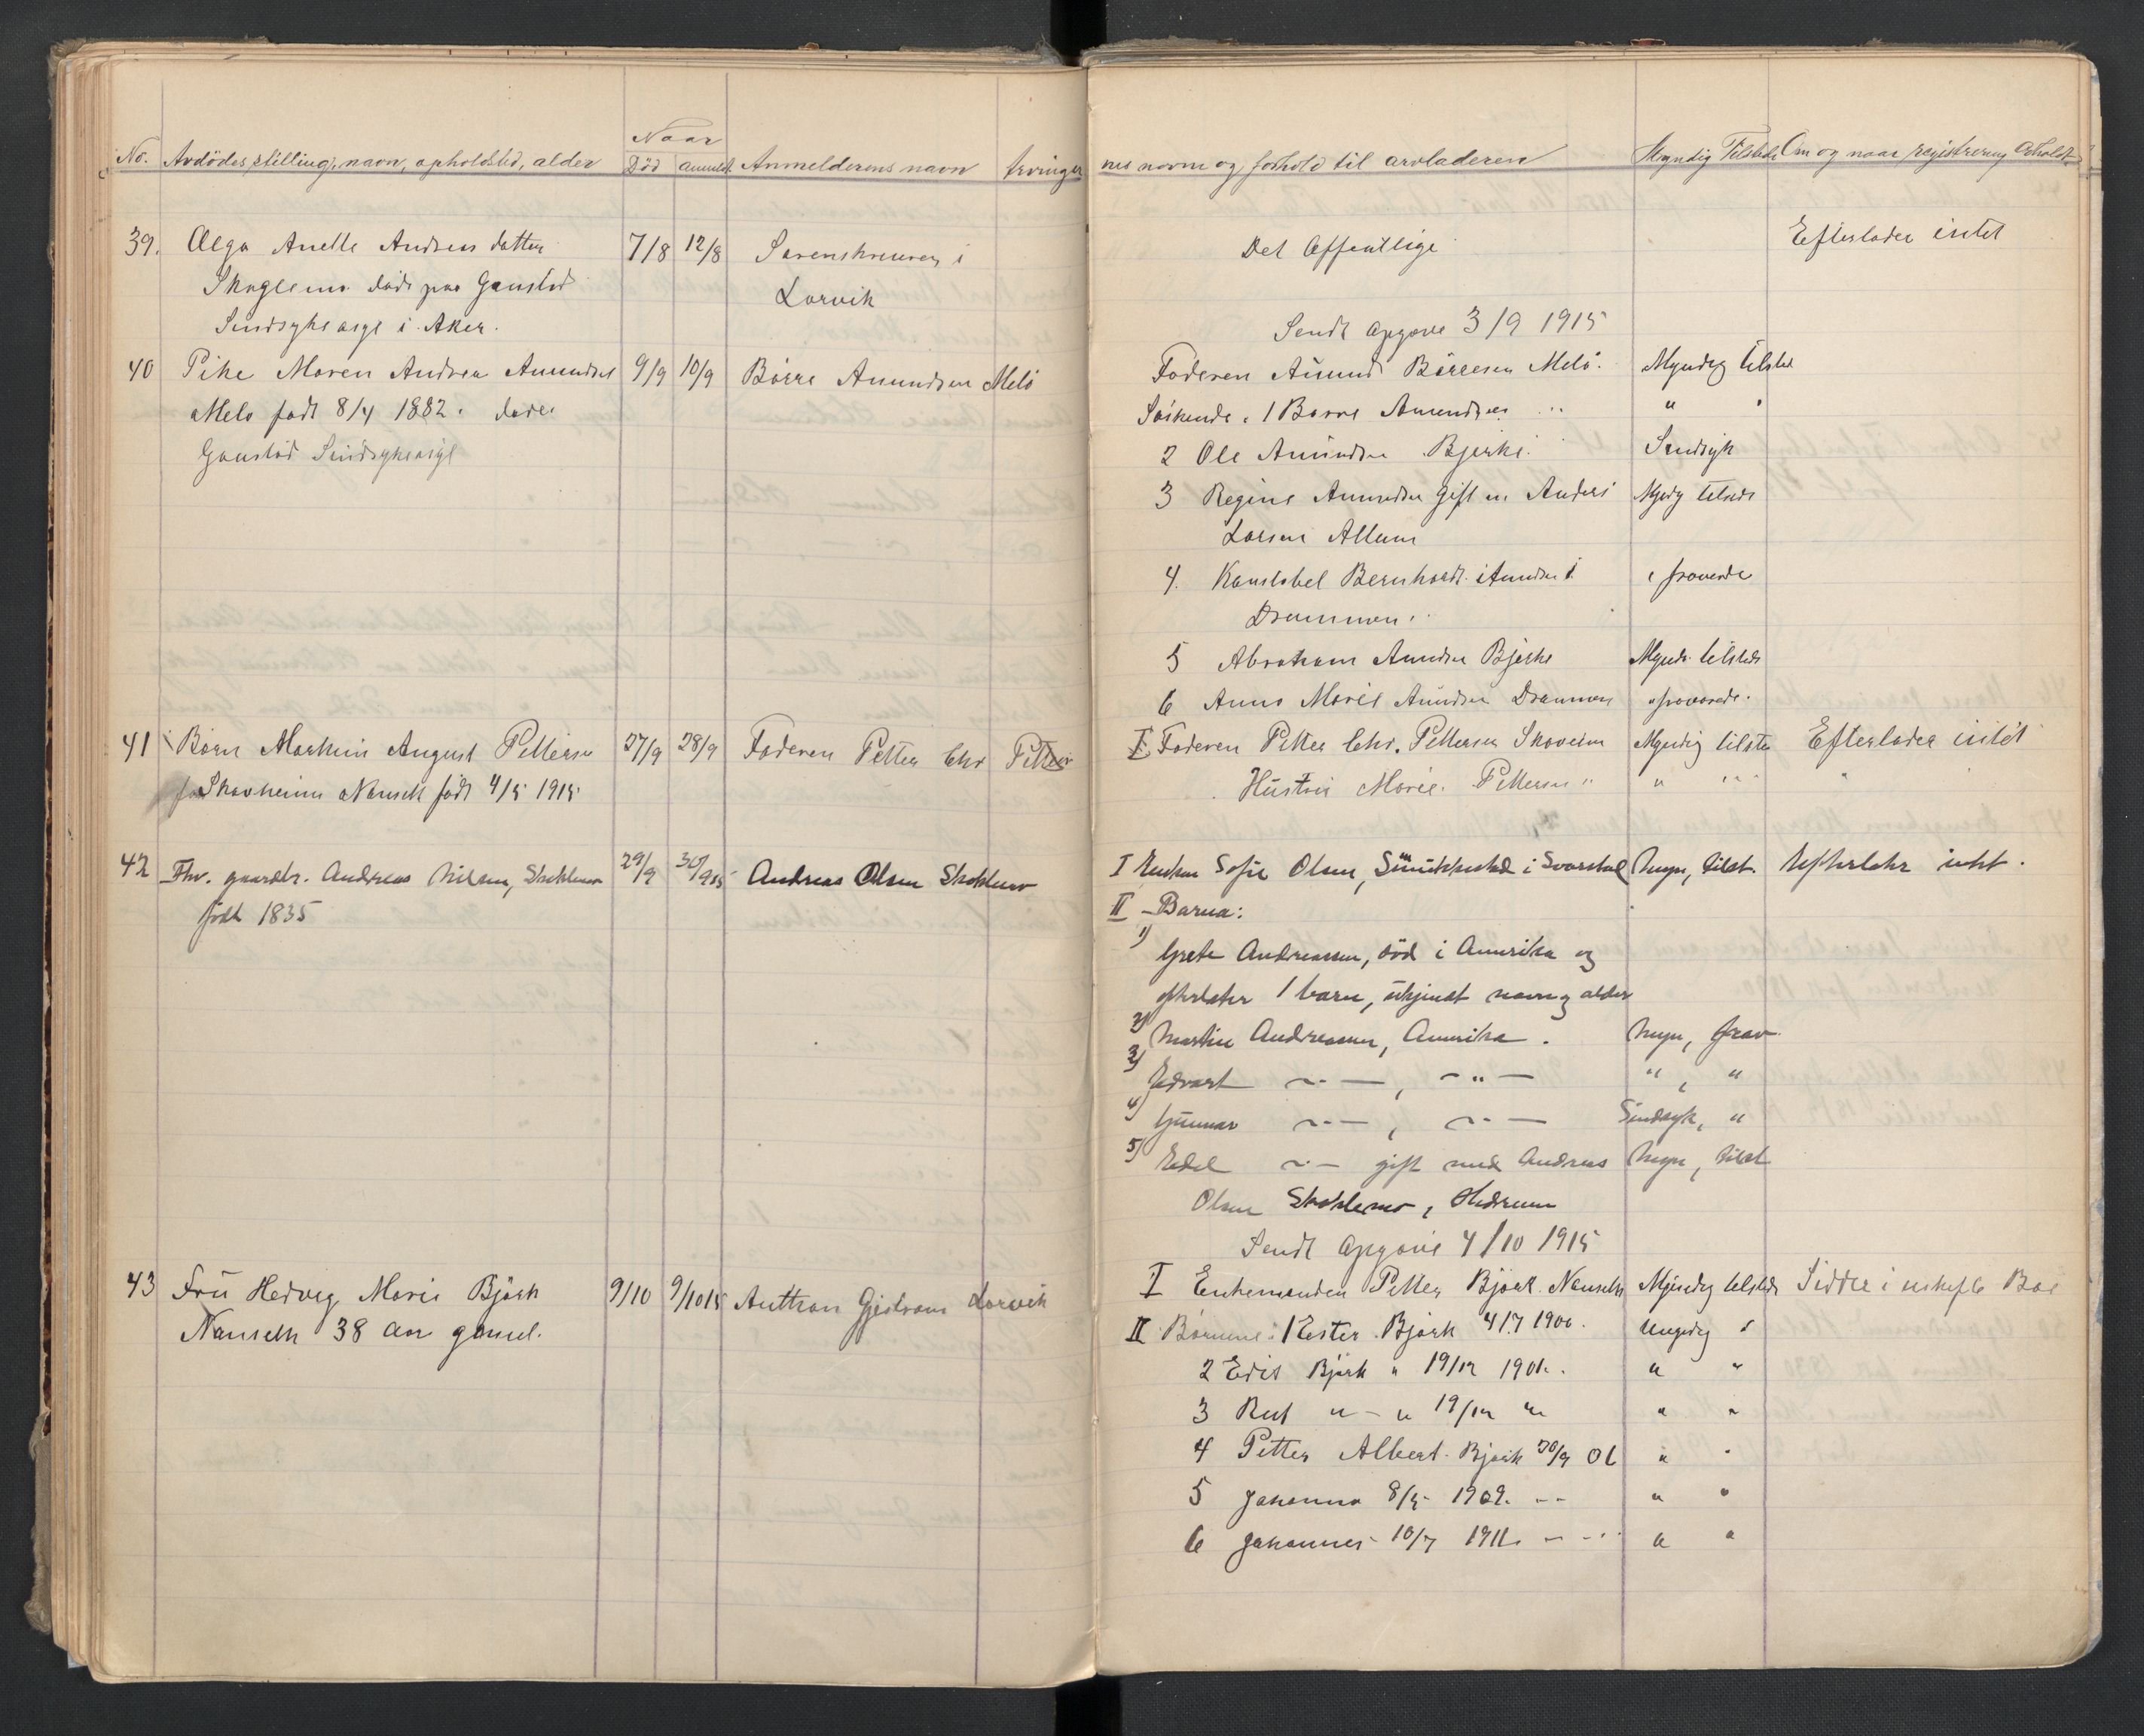 Naar
No. Avdødes stilling, navn, opholdsted, alder Død anmeldt Anmelderens navn Arvinger
nes navn og forhold til arvladeren Myndig Tilstede Om og naar registrering
39. Olga Anette Andreas datter 7/8 12/8 Sorenskriveren i
Skoglemo døde paa Gaustad Larvik
Sindsykeasyl i Aker.
Det Offentlige Efterlader intet
Sendt opgave 3/9 1915
40 Pike Maren Andrea Amundsen 9/9 10/9 Børre Amundsen Melø
Melø født 8/4 1882. døde
Gaustad Sindsykeasyl
Faderen Amund Børresen Melø. Myndig tilsted
Søskende. 1 Børre Amundsen " "
2 Ole Amundsen Bjerke. Sindsyk
3 Regine Amundsen gift m Anders Myndig tilsted
Larsen Allum
4. Konstabel Bernhardt Amundsen i fraværende
Drammen.
5 Abraham Amundsen Bjerke Mynd. tilstede
6 Anna Marie Amundsen Drammen fraværende.
41 Barn Martin August Pettersen 27/9 28/9 Faderen Petter Chr Pettersen
Skovheim Nanseth født 4/5 1915
I Faderen Petter Chr. Pettersen Skoveim Myndig tilsted Efterlader intet
Hustru Marie. Pettersen " " "
42 Fhv. gaardbr. Andreas Nilsen, Skoklemo 29/9 30/9 15 Andreas Olsen Skoklemo
født 1835
I Enken Sofie Olsen, i Svarstad Myn, tilst. Efterlater intet.
II Barna:
1) Grete Andreassen, død i Amerika og
efterlater 1 barn, ukjendt navn og alder
2) Martin Andreassen, Amerika. Myn, frav
3) Edvart —"—, —"— ", "
4) Gunnar —"—, —"— Sindsyk, "
5) Edel —"— gift med Andreas Myn, tilst
Olsen Skoklemo, Hedrum
Sendt Opgave 4/10 1915
43 Fru Hedvig Marie Bjørk 9/10 9/10 15 Anttran Gjestrum Larvik
Nanseth 38 aar gammel.
I Enkemanden Petter Bjørk. Nanseth Myndig tilstede Sidder i uskiftet Bo
II Børnene: 1 Ester Bjørk 4/7 1900. Umyndig "
2 Edit Bjørk " 19/12 1901. " "
3 Rut " - " 19/12 " " "
4 Petter Albert Bjørk 30/9 06 " "
5 Johanna 8/5 1909. -- " "
6 Johannes 10/7 1911. -- " "